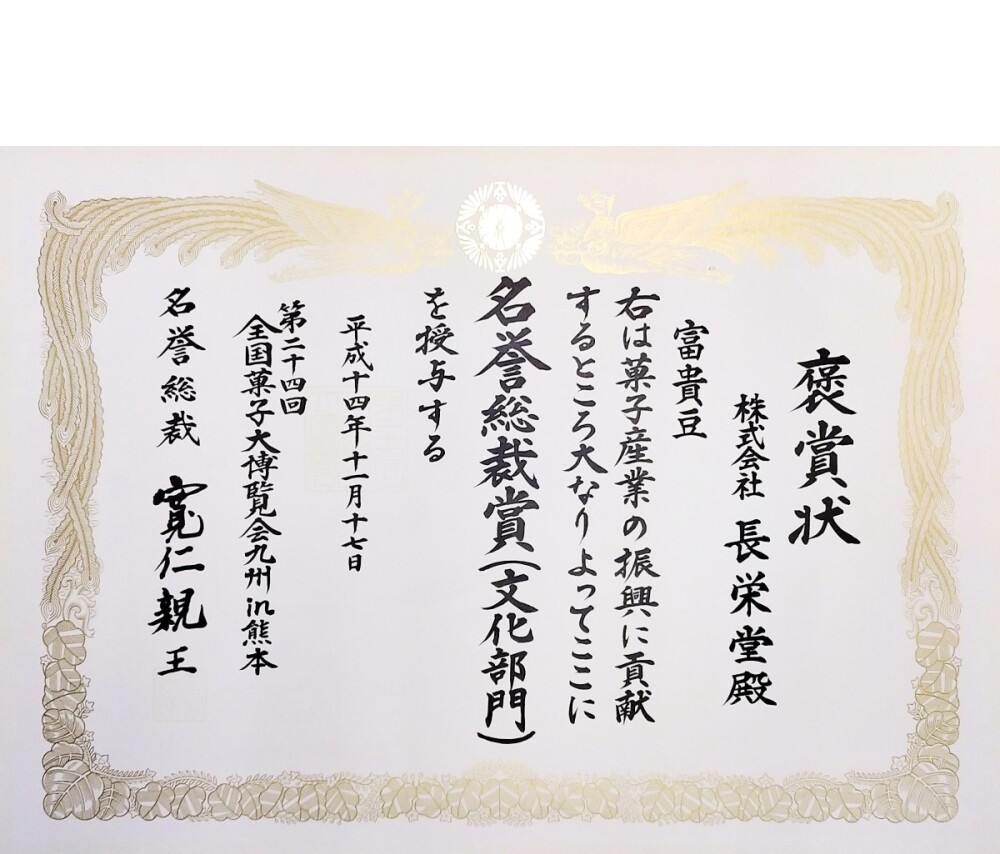 褒賞状
株式会社 長栄堂殿
富貴豆
右は菓子産業の振興に貢献
するところ大なりよってここに
名誉総裁賞(文化部門)
を授与する
平成十四年十一月十七日
第二十四回
全国菓子大博覧会九州in熊本
名誉総裁 寛仁親王